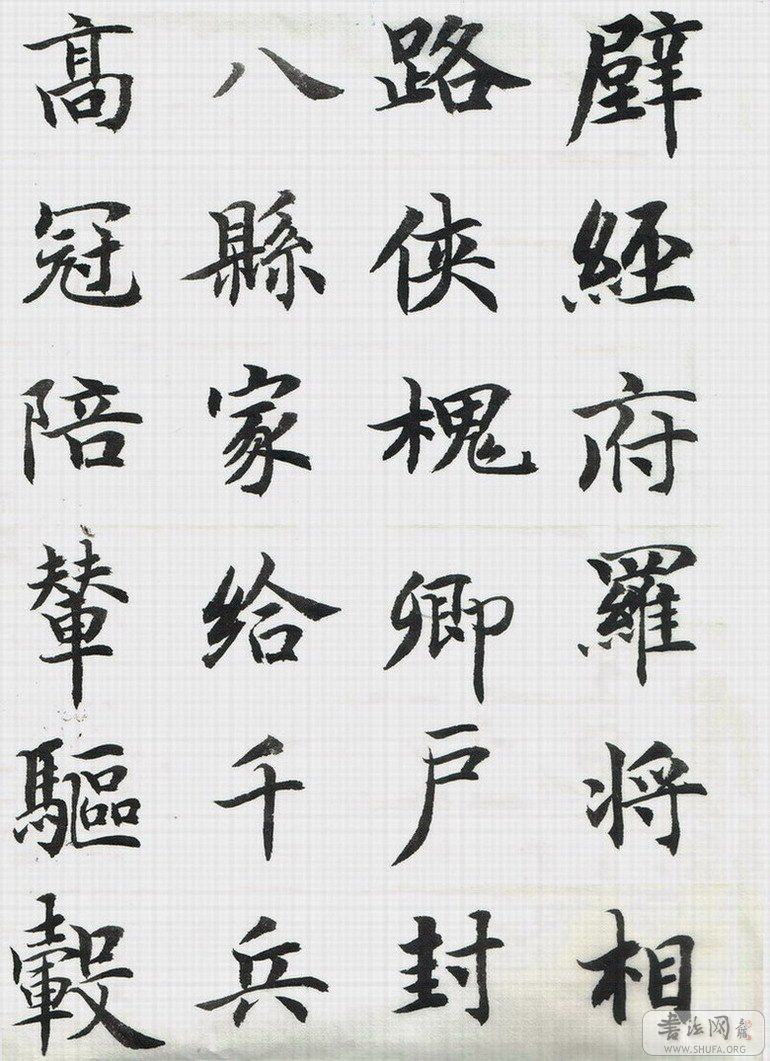 壁經府羅将相
路俠槐卿户封
八縣家給千兵
高冠陪輦驅轂
书法网
WWW.SHUFA.ORG